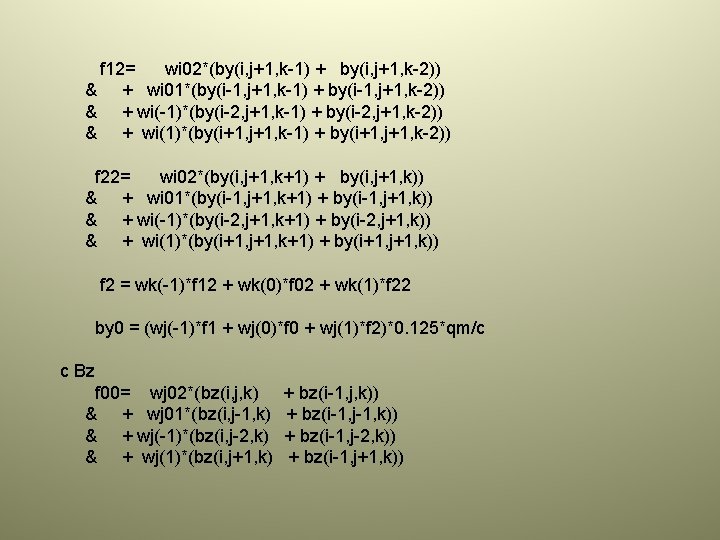 f12= wi02*(by(i,j+1,k-1) + by(i,j+1,k-2))
& + wi01*(by(i-1,j+1,k-1) + by(i-1,j+1,k-2))
& + wi(-1)*(by(i-2,j+1,k-1) + by(i-2,j+1,k-2))
& + wi(1)*(by(i+1,j+1,k-1) + by(i+1,j+1,k-2))
f22= wi02*(by(i,j+1,k+1) + by(i,j+1,k))
& + wi01*(by(i-1,j+1,k+1) + by(i-1,j+1,k))
& + wi(-1)*(by(i-2,j+1,k+1) + by(i-2,j+1,k))
& + wi(1)*(by(i+1,j+1,k+1) + by(i+1,j+1,k))
f2 = wk(-1)*f12 + wk(0)*f02 + wk(1)*f22
by0 = (wj(-1)*f1 + wj(0)*f0 + wj(1)*f2)*0.125*qm/c
c Bz
f00= wj02*(bz(i,j,k) + bz(i-1,j,k))
& + wj01*(bz(i,j-1,k) + bz(i-1,j-1,k))
& + wj(-1)*(bz(i,j-2,k) + bz(i-1,j-2,k))
& + wj(1)*(bz(i,j+1,k) + bz(i-1,j+1,k))